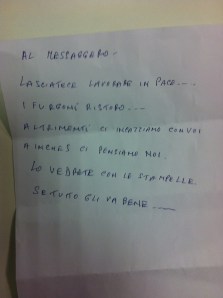 AL MESSAGGERO -
LASCIATECE LAVORARE IN PACE....
I FURGONI RISTORO....
ALTRIMENTI CI INCAZZIAMO CON VOI
A CI PENSIAMO NOI.
LO VEDRETE CON LE STAMPELLE
SE TUTTO GLI VA BENE....